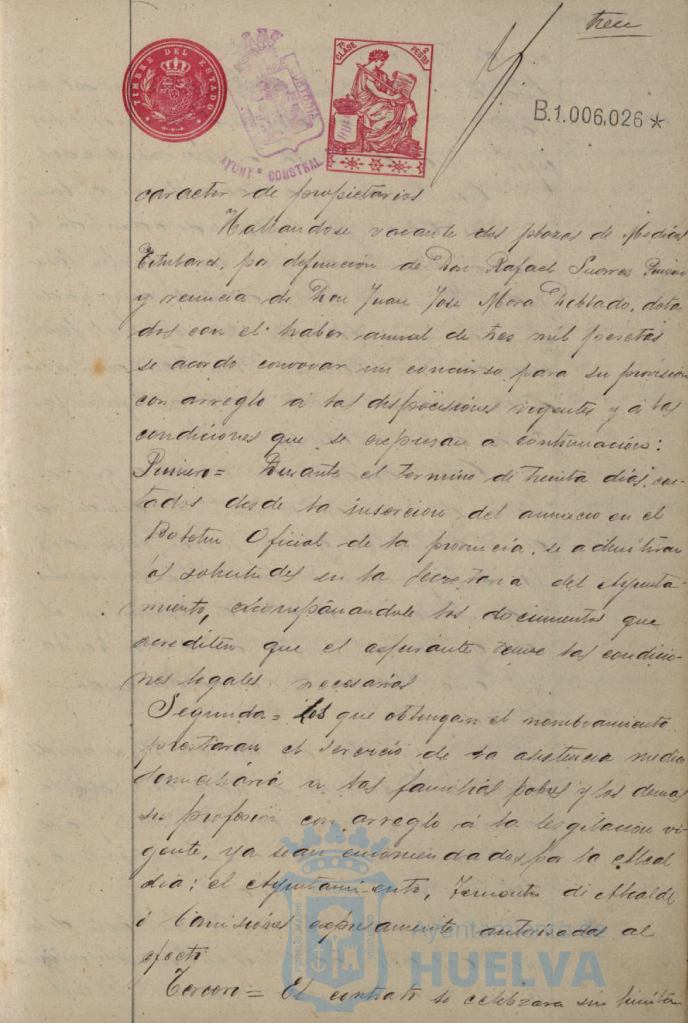 trece
TIMBRE DEL ESTADO
AYUNT.º CONSTNAL
7ª CLASE 2 PESETAS
B.1.006,026*
caracter de propietarios
Hallandose vacante dos plazas de Medicos
Titulares, por defunción de Don Rafael Suarez
y renuncia de Don Juan José Mora Doblado, dota
dos con el haber anual de tres mil pesetas
se acordo convocar un concurso para su provisión
con arreglo á las disposiciones vigentes y á las
condiciones que se expresan á continuación:
Primero = Durante el termino de treinta dias, con
tados desde la insercion del anuncio en el
Boletin Oficial de la provincia, se admitiran
las solicitudes en la Secretaria del Ayunta-
miento, acompañandole los documentos que
acrediten que el aspirante reune las condicio-
nes legales necesarias
Segunda = Los que obtengan el nombramiento
prestaran el servicio de la asistencia medica
domiciliaria á las familias pobres y los demas
su profesion con arreglo á la legislacion vi
gente, ya sean encomendados por la Alcal
dia; el Ayuntamiento, Tenientes de Alcalde
ó Comisiones expresamente autorizadas al
efecto
Tercero = El contrato se celebrara sin limita
Ayuntamiento de
HUELVA